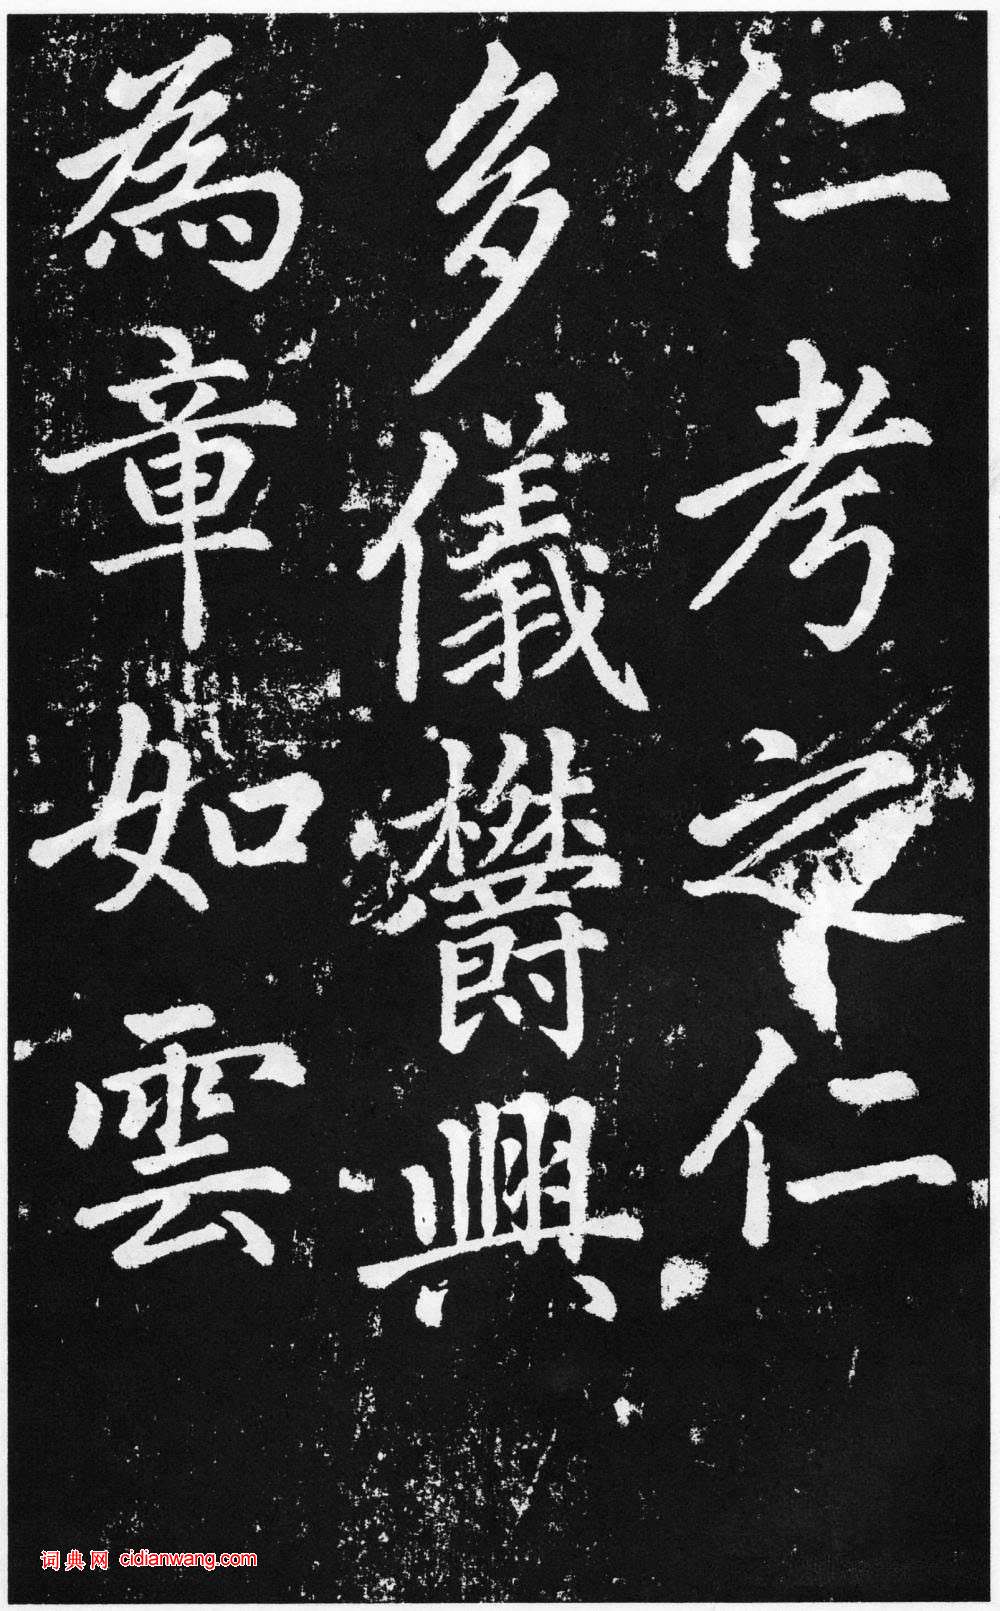 仁考之仁
多儀欝興
為章如雲
词典网 cidianwang.com